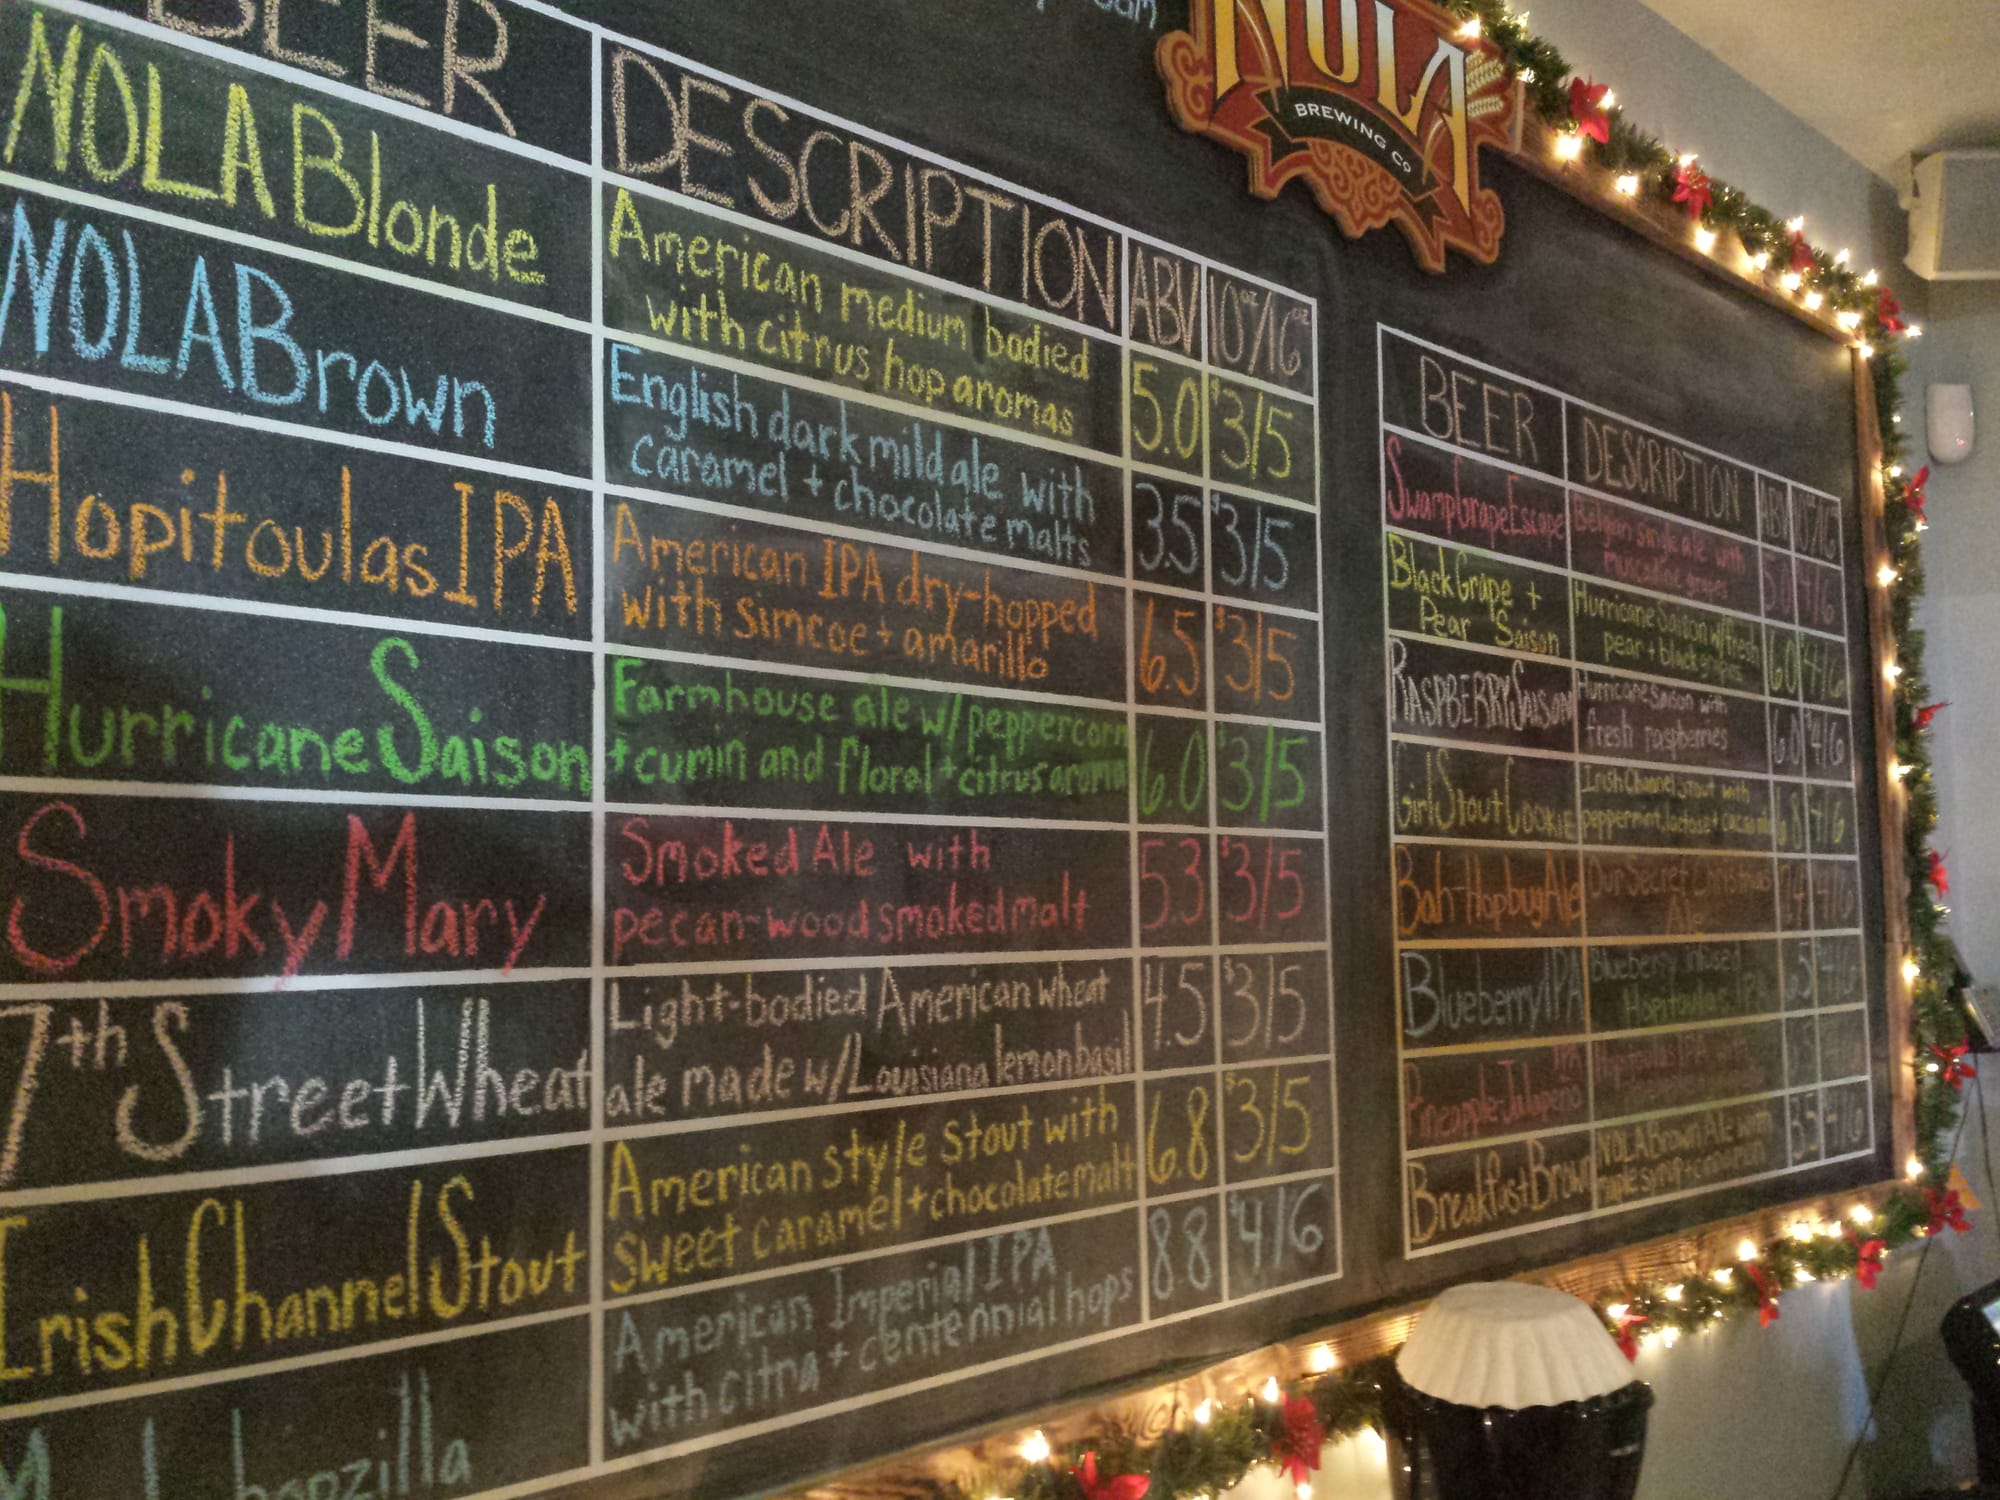 NOLA
BREWING CO
BEER DESCRIPTION ABV 10oz/16oz
NOLA Blonde American medium bodied 5.0 $3/5
with citrus hop aromas
NOLA Brown English dark mild ale with 3.5 $3/5
caramel + chocolate malts
Hopitoulas IPA American IPA dry-hopped 6.5 $3/5
with simcoe + amarillo
Hurricane Saison Farmhouse ale w/ peppercorn 6.0 $3/5
+ cumin and floral + citrus aroma
Smoky Mary Smoked Ale with 5.3 $3/5
pecan-wood smoked malt
7th Street Wheat Light-bodied American wheat 4.5 $3/5
ale made w/ Louisiana lemon basil
Irish Channel Stout American style stout with 6.8 $3/5
sweet caramel + chocolate malt
hopzilla American Imperial IPA 8.8 $4/6
with citra + centennial hops
BEER DESCRIPTION ABV 10oz/16oz
Swamp Grape Escape Belgian single ale with 5.0 4/6
muscadine grapes
Black Grape + Hurricane Saison w/ fresh 6.0 $4/6
Pear Saison pear + black grapes
RASPBERRY SAISON Hurricane Saison with 6.0 $4/6
fresh raspberries
Girl Stout Cookie Irish Channel Stout with 6.8 4/6
peppermint, lactose +
Bah-Hopbug Ale Our Secret Christmas 4/6
Ale
Blueberry IPA Blueberry infused 6.5 4/6
Hopitoulas IPA
Pineapple-Jalapeño IPA Hopitoulas IPA
Breakfast Brown NOLA Brown Ale with 3.5 4/6
maple syrup + cinnamon